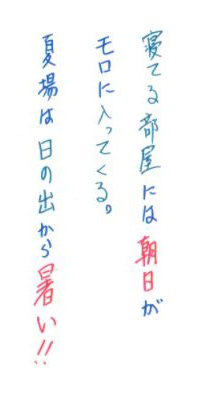 寝てる部屋には朝日が
モロに入ってくる。
夏場は日の出から暑い!!